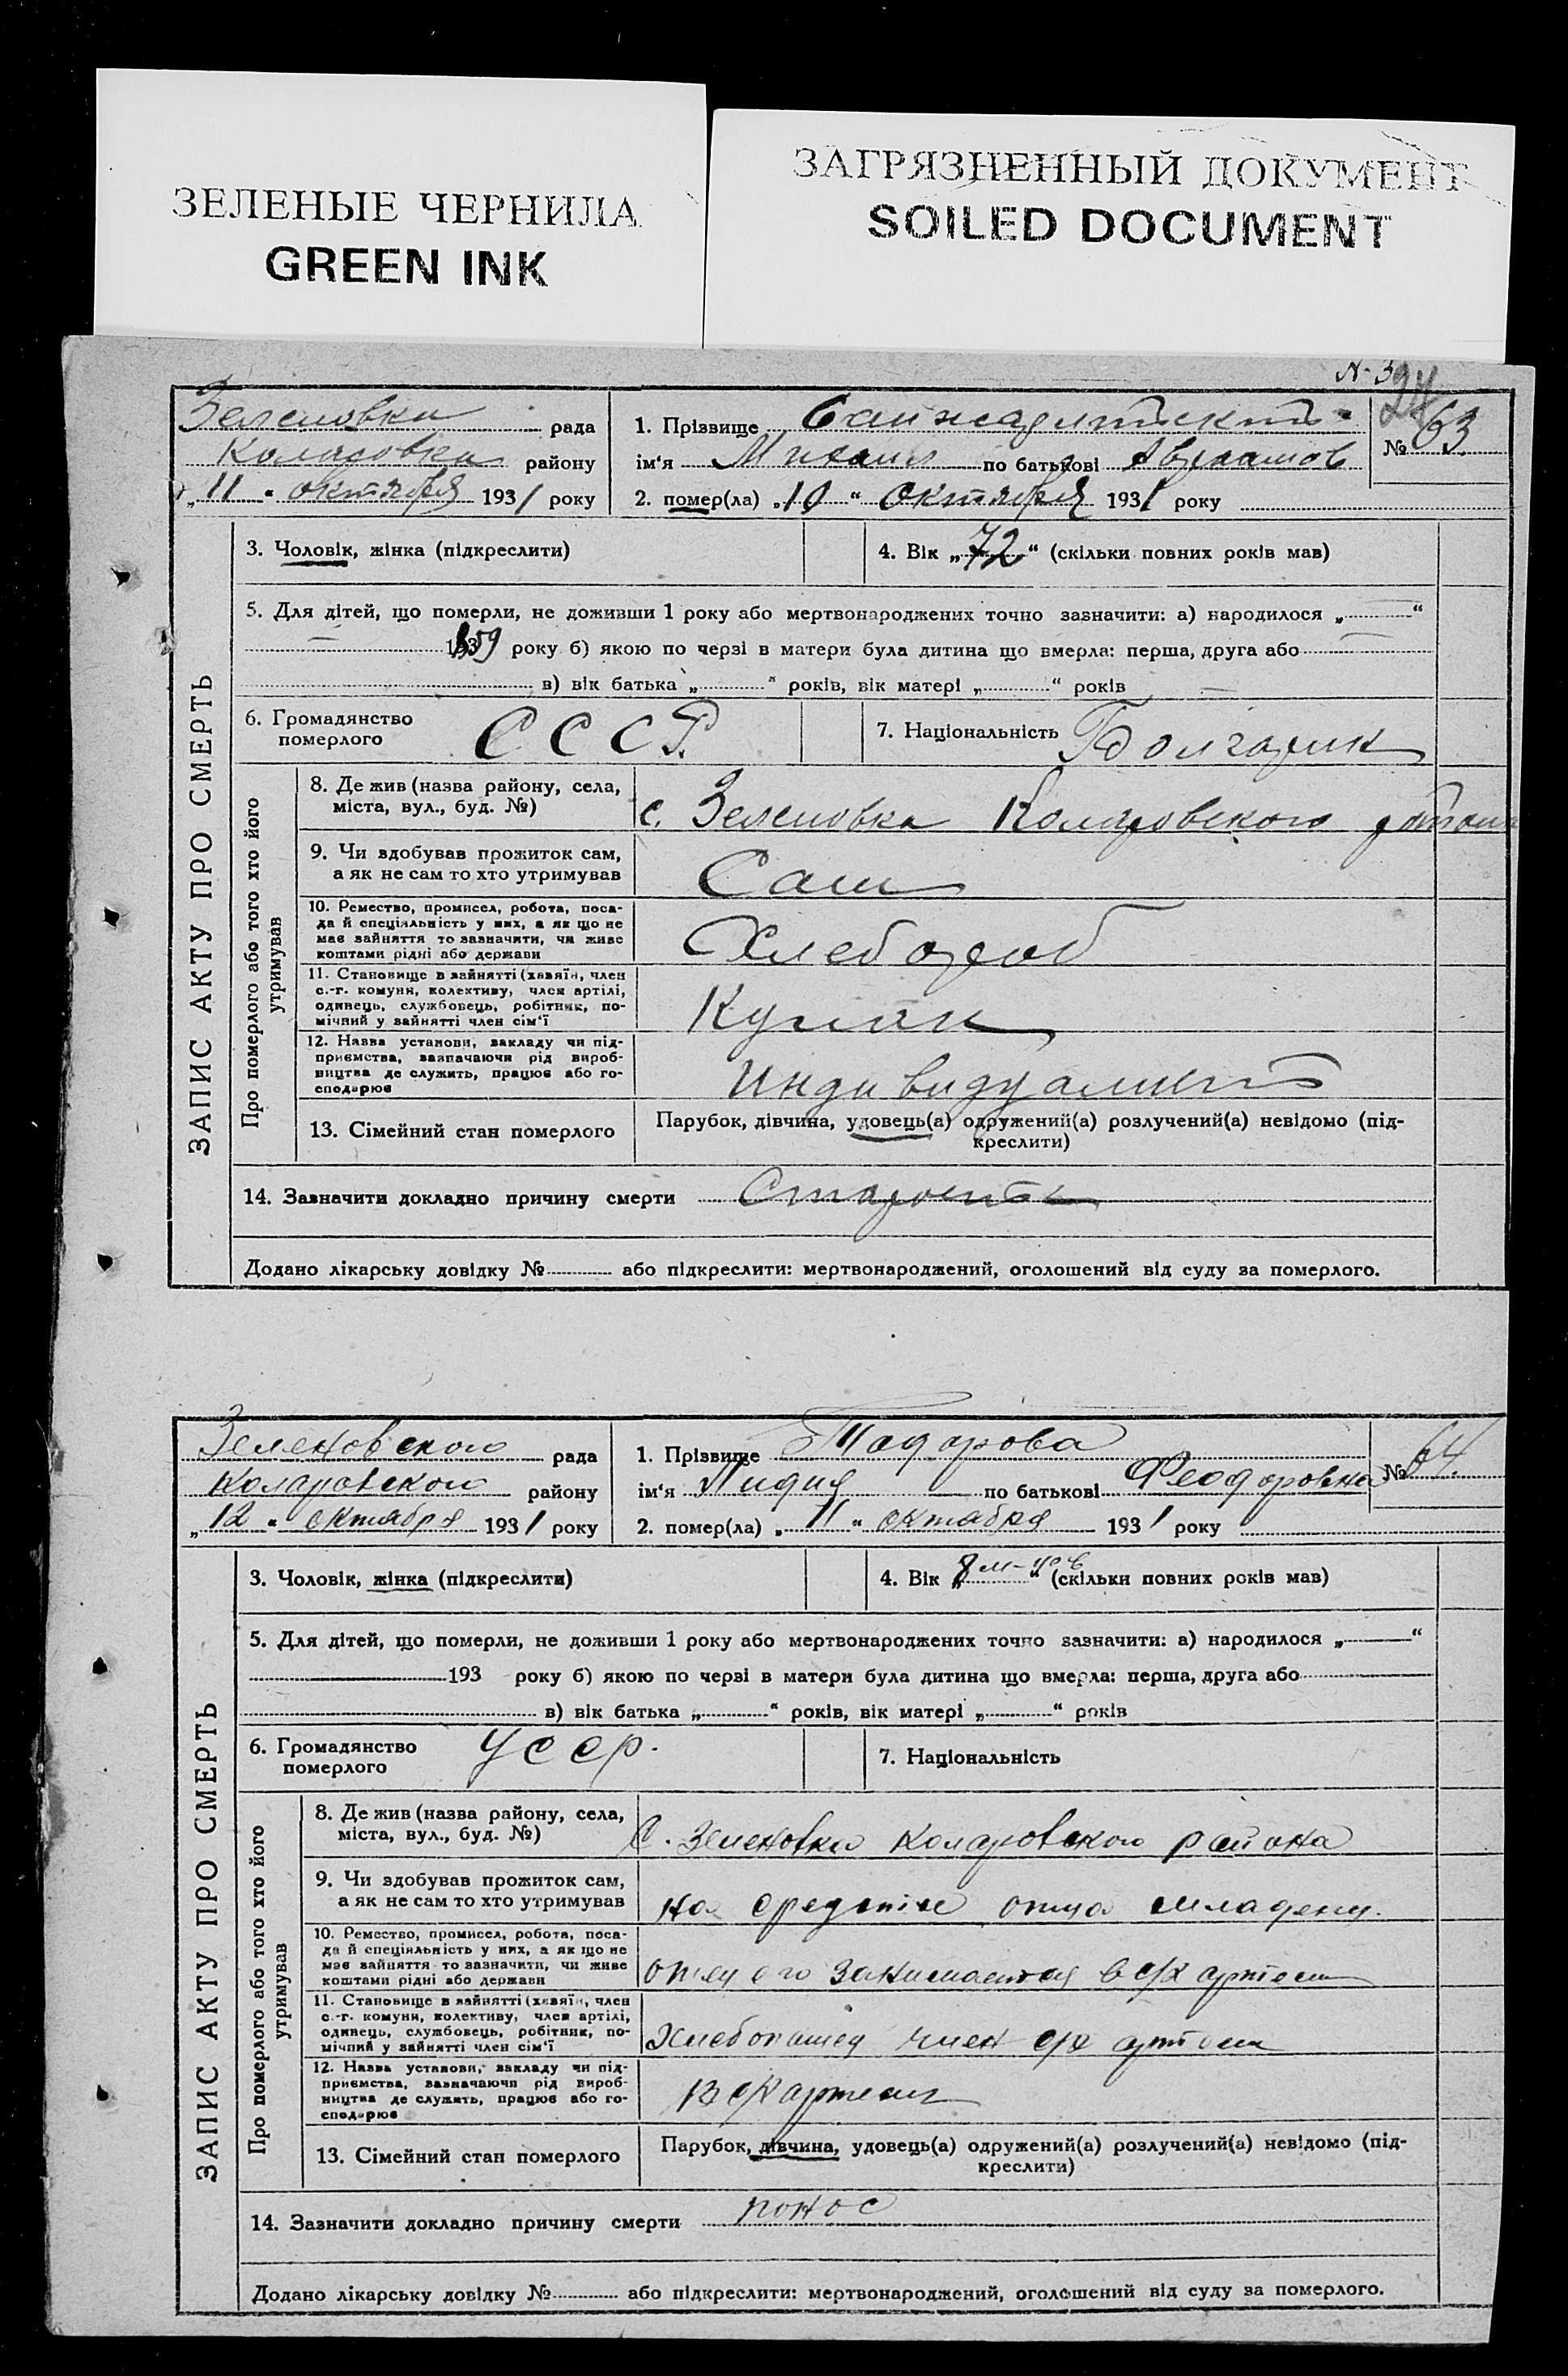 ЗЕЛЕНЫЕ ЧЕРНИЛА
GREEN INK
ЗАГРЯЗНЕННЫЙ ДОКУМЕНТ
SOILED DOCUMENT
ЗАПИС АКТУ ПРО СМЕРТЬ
Зеленовка рада
Коларовка району
„11" октября 1931 року
1. Прізвище
№ 63
ім'я Михаил по батькові Авраамов
2. помер(ла) „10" Октября 1931 року
3. Чоловік, жінка (підкреслити)
4. Вік „72" (скільки повних років мав)
5. Для дітей, що померли, не доживши 1 року або мертвонароджених точно зазначити: а) народилося „ "
1859 року б) якою по черзі в матери була дитина що вмерла: перша, друга або
в) вік батька „ " років, вік матері „ " років
6. Громадянство померлого СССР.
7. Національність Болгарин
Про померлого або того хто його утримував
8. Де жив (назва району, села,
міста, вул., буд. №)
с. Зеленовка Коларовского района
9. Чи здобував прожиток сам,
а як не сам то хто утримував
Сам
10. Ремество, промисел, робота, поса-
да й спеціяльність у них, а як що не
має зайняття то зазначити, чи живе
коштами рідні або держави
Хлебороб
11. Становище в зайнятті (хазяїн, член
с.-г. комуни, колективу, член артілі,
одинець, службовець, робітник, по-
мічний у зайнятті член сім'ї
Кулак
12. Назва установи, закладу чи під-
приємства, зазначаючи рід вироб-
ництва де служить, працює або го-
сподарює
13. Сімейний стан померлого
Парубок, дівчина, удовець(а) одружений(а) розлучений(а) невідомо (під-
креслити)
14. Зазначити докладно причину смерти Старость
Додано лікарську довідку № або підкреслити: мертвонароджений, оголошений від суду за померлого.
ЗАПИС АКТУ ПРО СМЕРТЬ
Зеленовского рада
Коларовского району
„12" октября 1931 року
1. Прізвище Тодорова
№ 64.
ім'я Лидия по батькові Феодоровна
2. помер(ла) „11" октября 1931 року
3. Чоловік, жінка (підкреслити)
4. Вік „8 м-цов" (скільки повних років мав)
5. Для дітей, що померли, не доживши 1 року або мертвонароджених точно зазначити: а) народилося „ "
193 року б) якою по черзі в матери була дитина що вмерла: перша, друга або
в) вік батька „ " років, вік матері „ " років
6. Громадянство померлого УССР.
7. Національність
Про померлого або того хто його утримував
8. Де жив (назва району, села,
міста, вул., буд. №)
С. Зеленовка Коларовского района
9. Чи здобував прожиток сам,
а як не сам то хто утримував
на отца младенц.
10. Ремество, промисел, робота, поса-
да й спеціяльність у них, а як що не
має зайняття то зазначити, чи живе
коштами рідні або держави
отец его занимается в с/х артели
11. Становище в зайнятті (хазяїн, член
с.-г. комуни, колективу, член артілі,
одинець, службовець, робітник, по-
мічний у зайнятті член сім'ї
член с/х артели
12. Назва установи, закладу чи під-
приємства, зазначаючи рід вироб-
ництва де служить, працює або го-
сподарює
В с/х артели
13. Сімейний стан померлого
Парубок, дівчина, удовець(а) одружений(а) розлучений(а) невідомо (під-
креслити)
14. Зазначити докладно причину смерти понос
Додано лікарську довідку № або підкреслити: мертвонароджений, оголошений від суду за померлого.